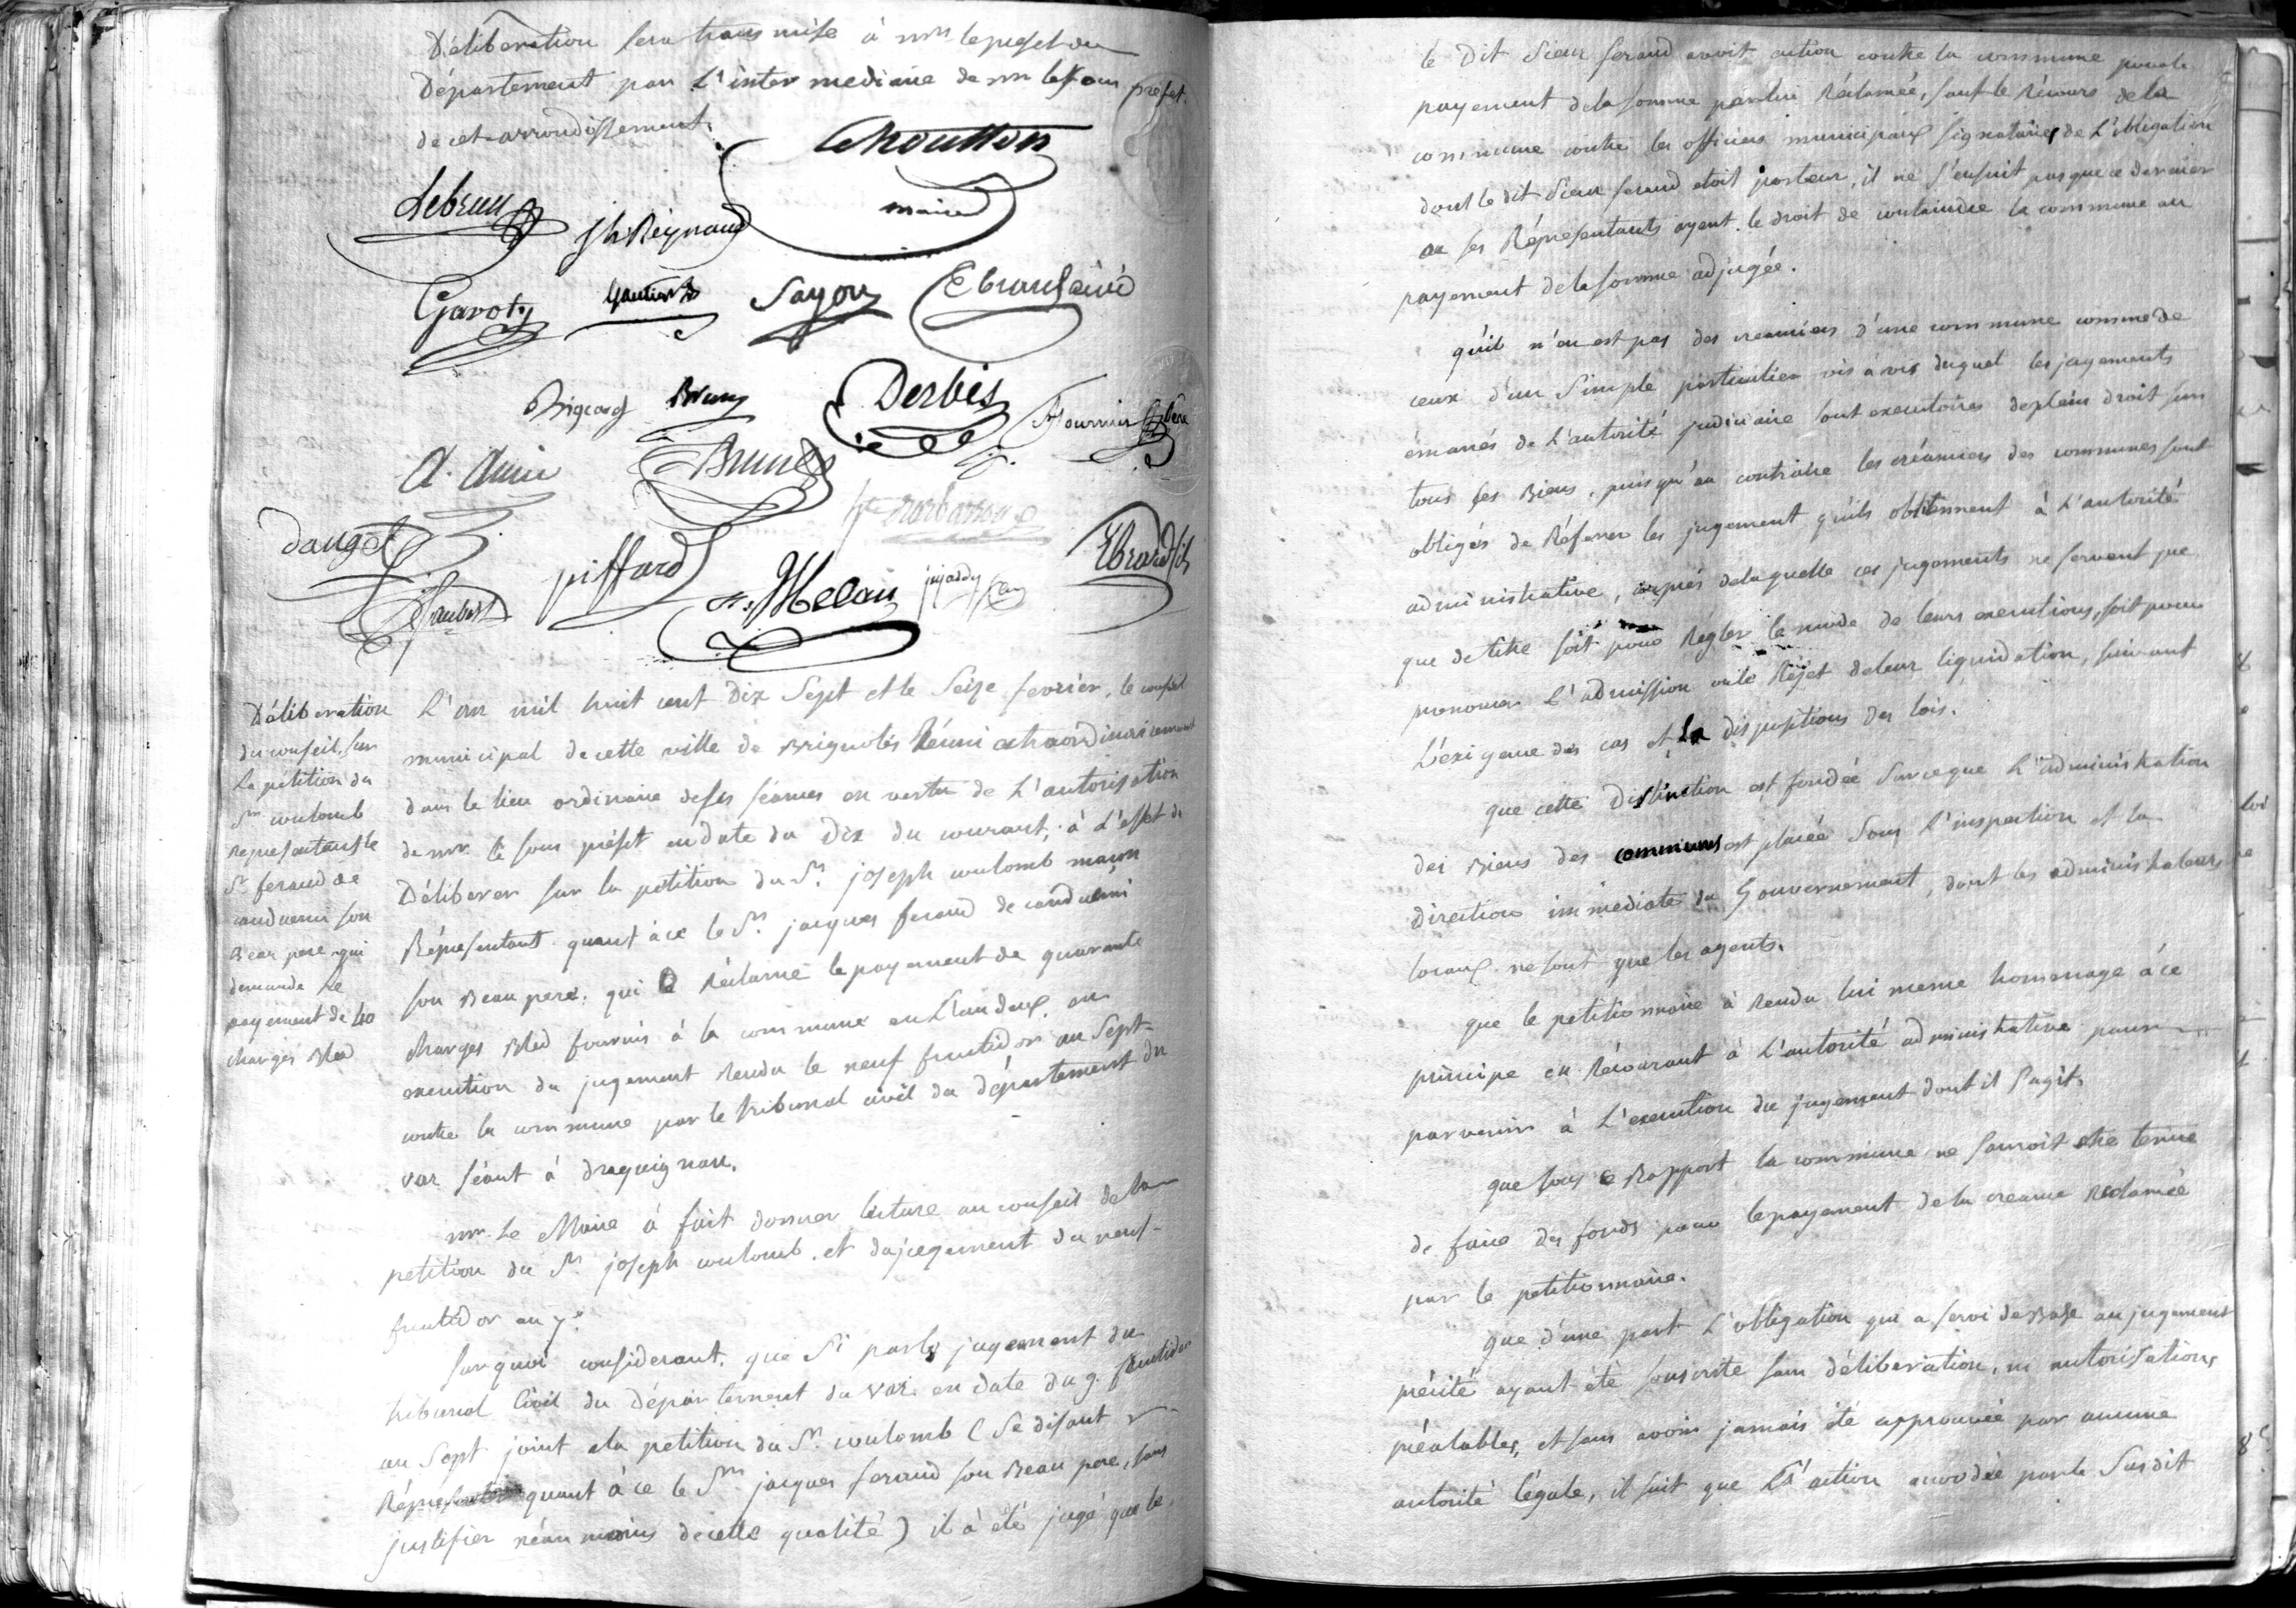 Déliberation sera transmise à mr. le prefet du
Département par L'intermediaire de mr le sous prefet
de cet arrondissement.
maire
Lebrun
jh Reynaud
Garoty
Gautier
Sayou
Ebrard ainé
Brun
Derbès
Fournier
A. Amic
Brun
Barbaroux
dauget
piffard
Melan
Ebrard fils
Joubert
Déliberation
du conseil, sur
La pétition du
Sr. coulomb
Representant le
Sr. feraud de
son
Beau pere qui
demande Le
payement de 40
charges Bled
L'an mil huit cent Dix Sept et le Seize fevrier, le conseil
municipal de cette ville de Brignoles Réuni extraordinairement
dans le lieu ordinaire de ses séances en vertu de L'autorisation
de mr. le sous préfet en date du Dix du courant, à L'effet de
Déliberer sur la pétition du Sr. joseph coulomb maçon
Réprésentant quant à ce le Sr. jacques feraud de
son Beau pere, qui Réclame le payement de quarante
charges Bled fournis à la commune en L'an deux, en
execution du jugement Rendu le neuf fructidor an Sept
contre la commune par le tribunal civil du département du
var séant à draguignan.
mr. Le Maire à fait donner lecture au conseil de la
petition du Sr. joseph coulomb. et du jugement du neuf
fructidor an 7e.
Sur quoi considerant, que Si par le jugement du
tribunal Civil du Département du var. en date du 9. fructidor
an Sept joint a la petition du Sr. coulomb (Se disant
Réprésentant quant à ce le Sr. jacques feraud son Beau pere, sans
justifier néanmoins de cette qualité) il à été jugé que le
le Dit Sieur feraud avoit action contre la commune pour le
payement de la somme par lui Réclamée, sauf le Récours de la
commune contre les officiers municipaux signataires de L'obligation
dont le dit Sieur feraud etoit porteur, il ne s'ensuit pas que ce dernier
ou ses Réprésentants ayent le droit de contraindre la commune au
payement de la somme adjugée.
qu'il n'en est pas des creanciers d'une commune comme de
ceux d'un Simple particulier vis à vis duquel les jugements
émanés de L'autorité judiciaire sont executoires de plein droit sur
tous ses Biens, puis qu'au contraire les créanciers des communes sont
obligés de Réferer les jugement qu'ils obtiennent à L'autorité
administrative, auprès de laquelle ces jugements ne servent que
que de titre soit pour Régler le mode de leurs executions, soit pour
prononcer L'admission ou le Réjet de leur liquidation, suivant
L'exigence des cas et la dispositions des lois.
que cette Distinction est fondée Sur ce que L'administration
des Biens des communes est placée Sous L'inspection et la
direction immediate du Gouvernement, dont les administrateurs
locaux ne sont que les agents.
que le petitionnaire à Rendu lui meme hommage à ce
principe en Récourant à L'autorité administrative pour
parvenir à L'execution du jugement dont il s'agit.
que sous ce Rapport la commune ne sauroit etre tenue
de faire des fonds pour le payement de la creance Reclamée
par le petitionnaire.
que d'une part L'obligation qui a servi de Base au jugement
précité ayant été souscrite sans déliberation, ni autorisations
préalables, et sans avoir jamais été approuvée par aucune
autorité légale, il suit que L'action accordée par le Susdit